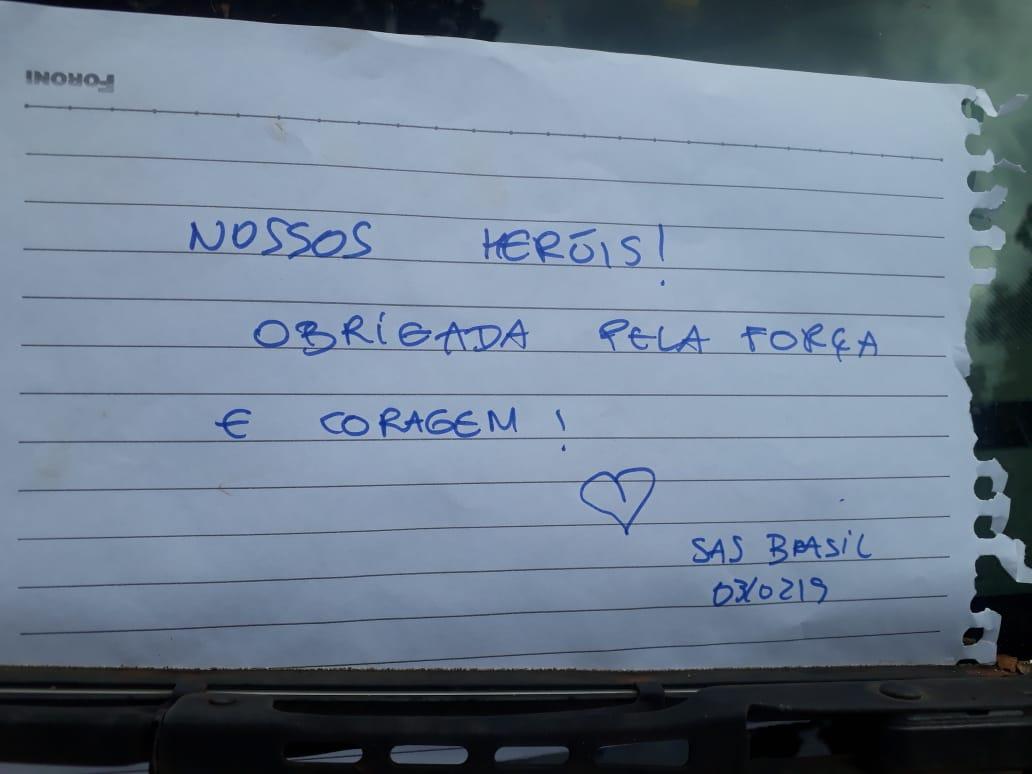 FORONI
NOSSOS HERÓIS!
OBRIGADA PELA FORÇA
E CORAGEM!
SAS BRASIL
03/0219